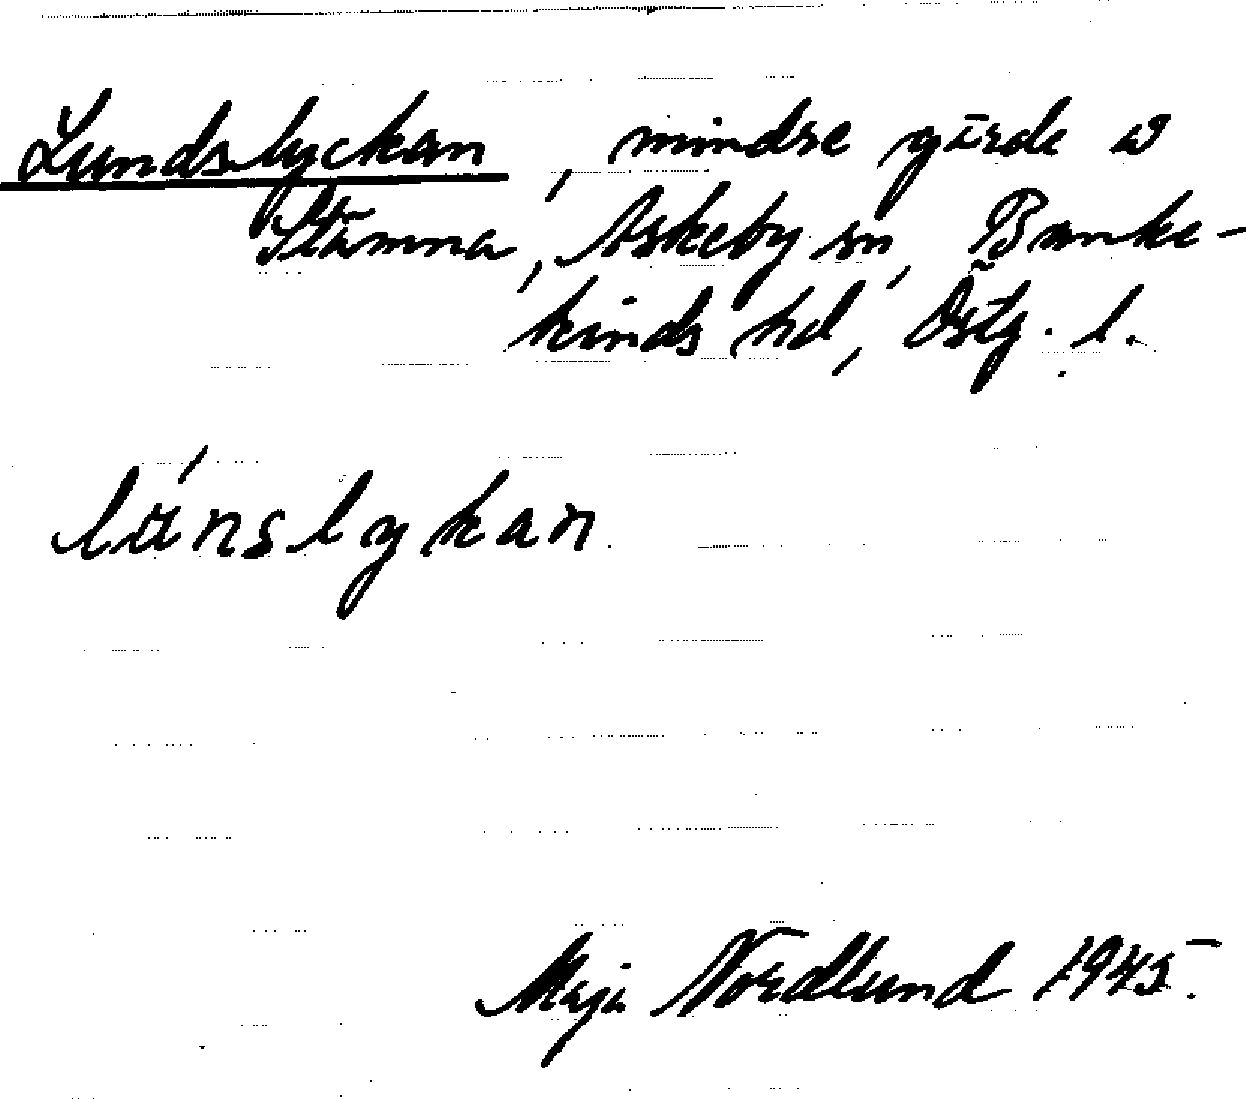 Lundslyckan, mindre gärde å
Stämma, Askeby sn, Banke-
kinds hd, Östg. l.
lu'nslykan.
Maja Nordlund 1945.